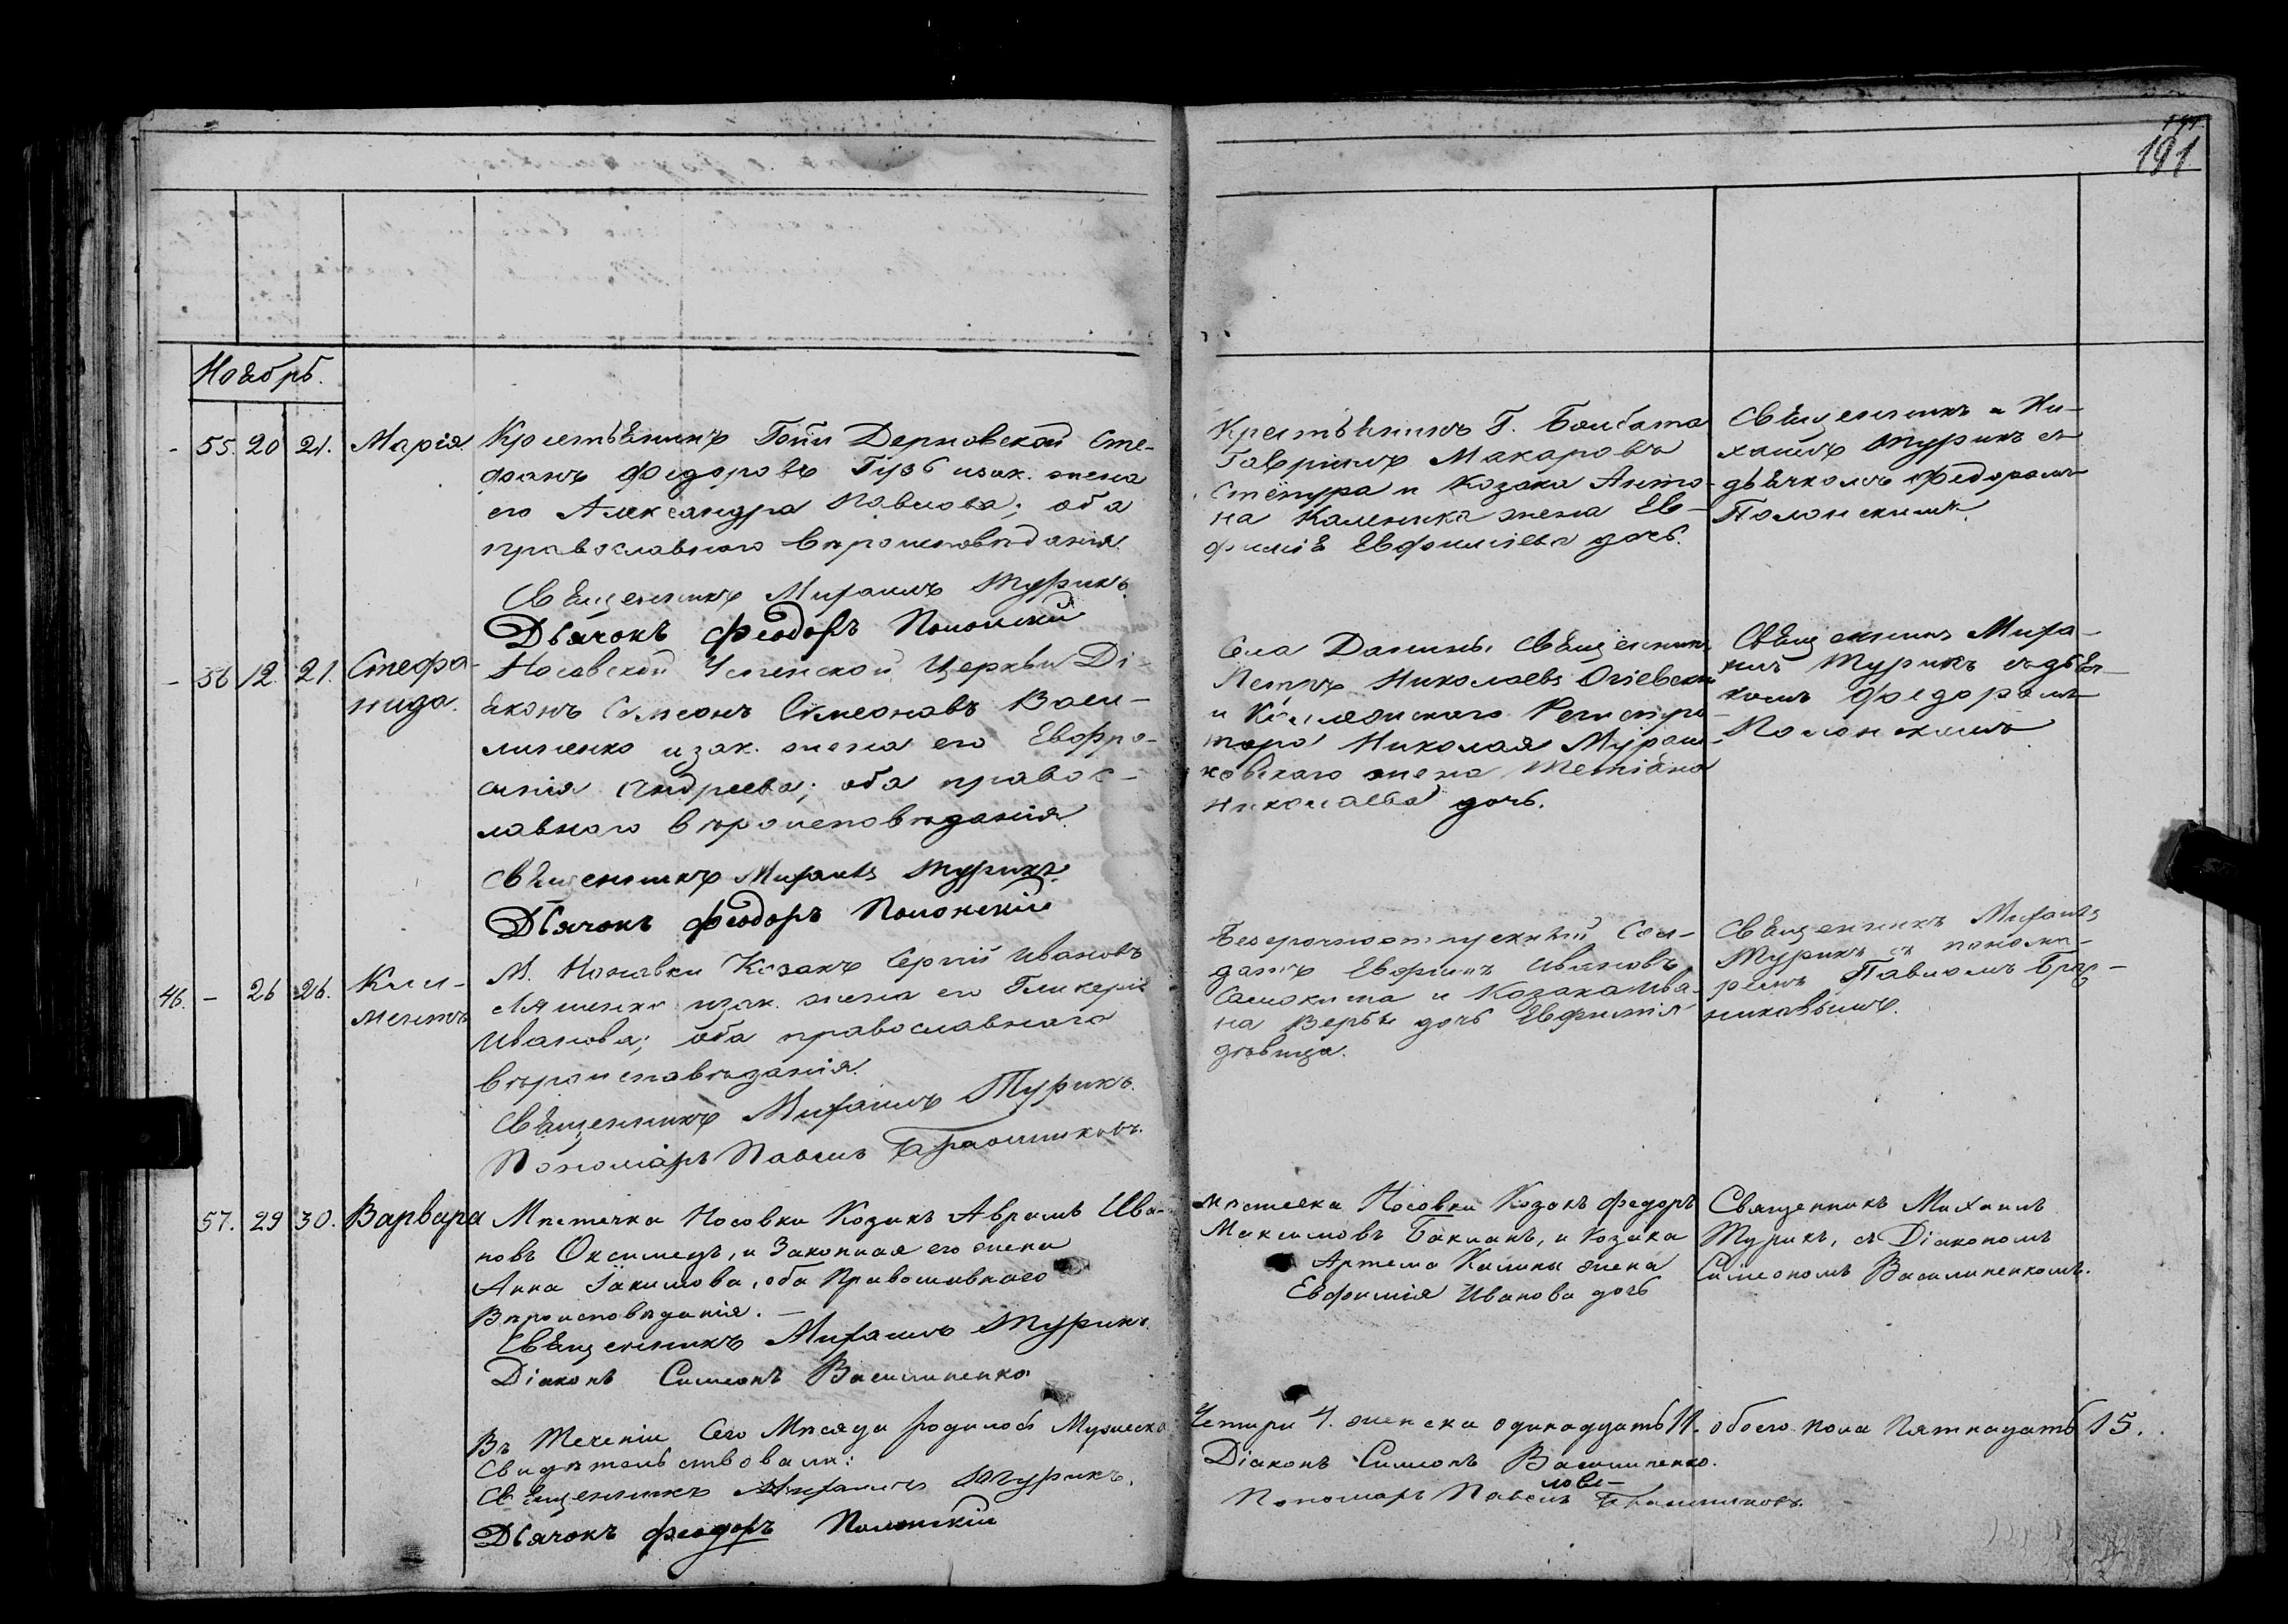 191
Ноябрь.
- 55. 20 21. Марія.
Крестьянинъ Гопи Дерповской Сте-
фанъ Федоровъ Гузь и зак. жена
его Александра Павлова; оба
православного вѣроисповѣданія.
Священникъ Михаилъ Турикъ
Дьячокъ Феодоръ Полонскій
Крестьянинъ Г.
Гавріилъ Макаровъ
и Козака Анто-
на жена Ев-
фимія Евфиміева дочь.
Священникъ Ми-
хаилъ Турикъ съ
дьячкомъ Федоромъ
Полонскимъ.
- 56 12. 21. Стефа-
нида.
Носовской Успенской Церкви Ді-
яконъ Симеонъ Симеоновъ Васи-
липенко и зак. жена его Евфро-
синія Андреева; оба правос-
лавного вѣроисповѣданія.
Священникъ Михаилъ Турикъ.
Дьячокъ Феодоръ Полонскій
Села Данины Священникъ
Петръ Николаевъ Огіевски
и Коллежскаго Регистра-
тора Николая Мураш-
ковскаго жена Тетіана
Николаева дочь.
Священникъ Миха-
илъ Турикъ съ дьяч-
комъ Федоромъ
Полонскимъ
46. - 26 26. Кли-
ментъ
М. Носовки Козакъ Сергій Ивановъ
Ляшенко и зак. жена его Гликерія
Иванова; оба православнаго
вѣроисповѣданія.
Священникъ Михаилъ Турикъ.
Пономарь Павелъ Брасниковъ.
Безсрочноотпускный Сол-
датъ Евфимъ Ивановъ
и Козака Ива-
на Вербы дочь Евфимія
дѣвица.
Священникъ Михаилъ
Турикъ съ понома-
ремъ Павломъ Брас-
никовымъ.
57. 29 30. Варвара
Мѣстечка Носовки Козакъ Аврамъ Ива-
новъ Оксимецъ, и Законная его жена
Анна Іакимова, оба Православнаго
Вѣроисповѣданія. —
Священникъ Михаилъ Турикъ.
Діаконъ Симеонъ Василипенко
мѣстечка Носовки Козакъ Федоръ
Максимовъ Бакланъ, и козака
Артема Калины жена
Евфимія Иванова дочь
Священникъ Михаилъ
Турикъ, съ Діакономъ
Симеономъ Василипенкомъ.
Въ Теченіи Сего Мѣсяца родилось Мужеска
Четыри 4. женска одинадцать 11. обоего пола Пятнадать 15.
Свидѣтельствовали:
Священникъ Михаилъ Турикъ.
Дьячокъ Феодоръ Полонскій
Діаконъ Симеонъ Василипенко.
Пономарь Павелъ Брасниковъ.